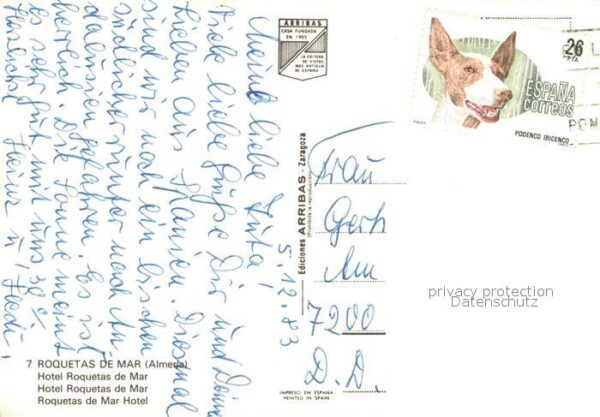 5.12.83
Meine liebe Juta!
Viele liebe Grüße Dir und Deinen
Lieben aus Spanien. Diesmal
sind wir noch ein bischen
südlicher runter nach An
dalusien gefahren. Es ist
herrlich. Die Sonne meint
es gut mit uns 30 C
Heinz u.
ARRIBAS
CASA FUNDADA
EN 1905
LA EDITORA
DE VISTAS
MAS ANTIGUA
DE ESPAÑA
Ediciones ARRIBAS - Zaragoza
(Prohibida la reproducción)
26
PTA
ESPAÑA
correos
PODENCO IBICENCO
Frau
Gerh
Am
7200
D.D.
privacy protection
Datenschutz
7 ROQUETAS DE MAR (Almeria)
Hotel Roquetas de Mar
Hotel Roquetas de Mar
Roquetas de Mar Hotel
IMPRESO EN ESPAÑA
PRINTED IN SPAIN